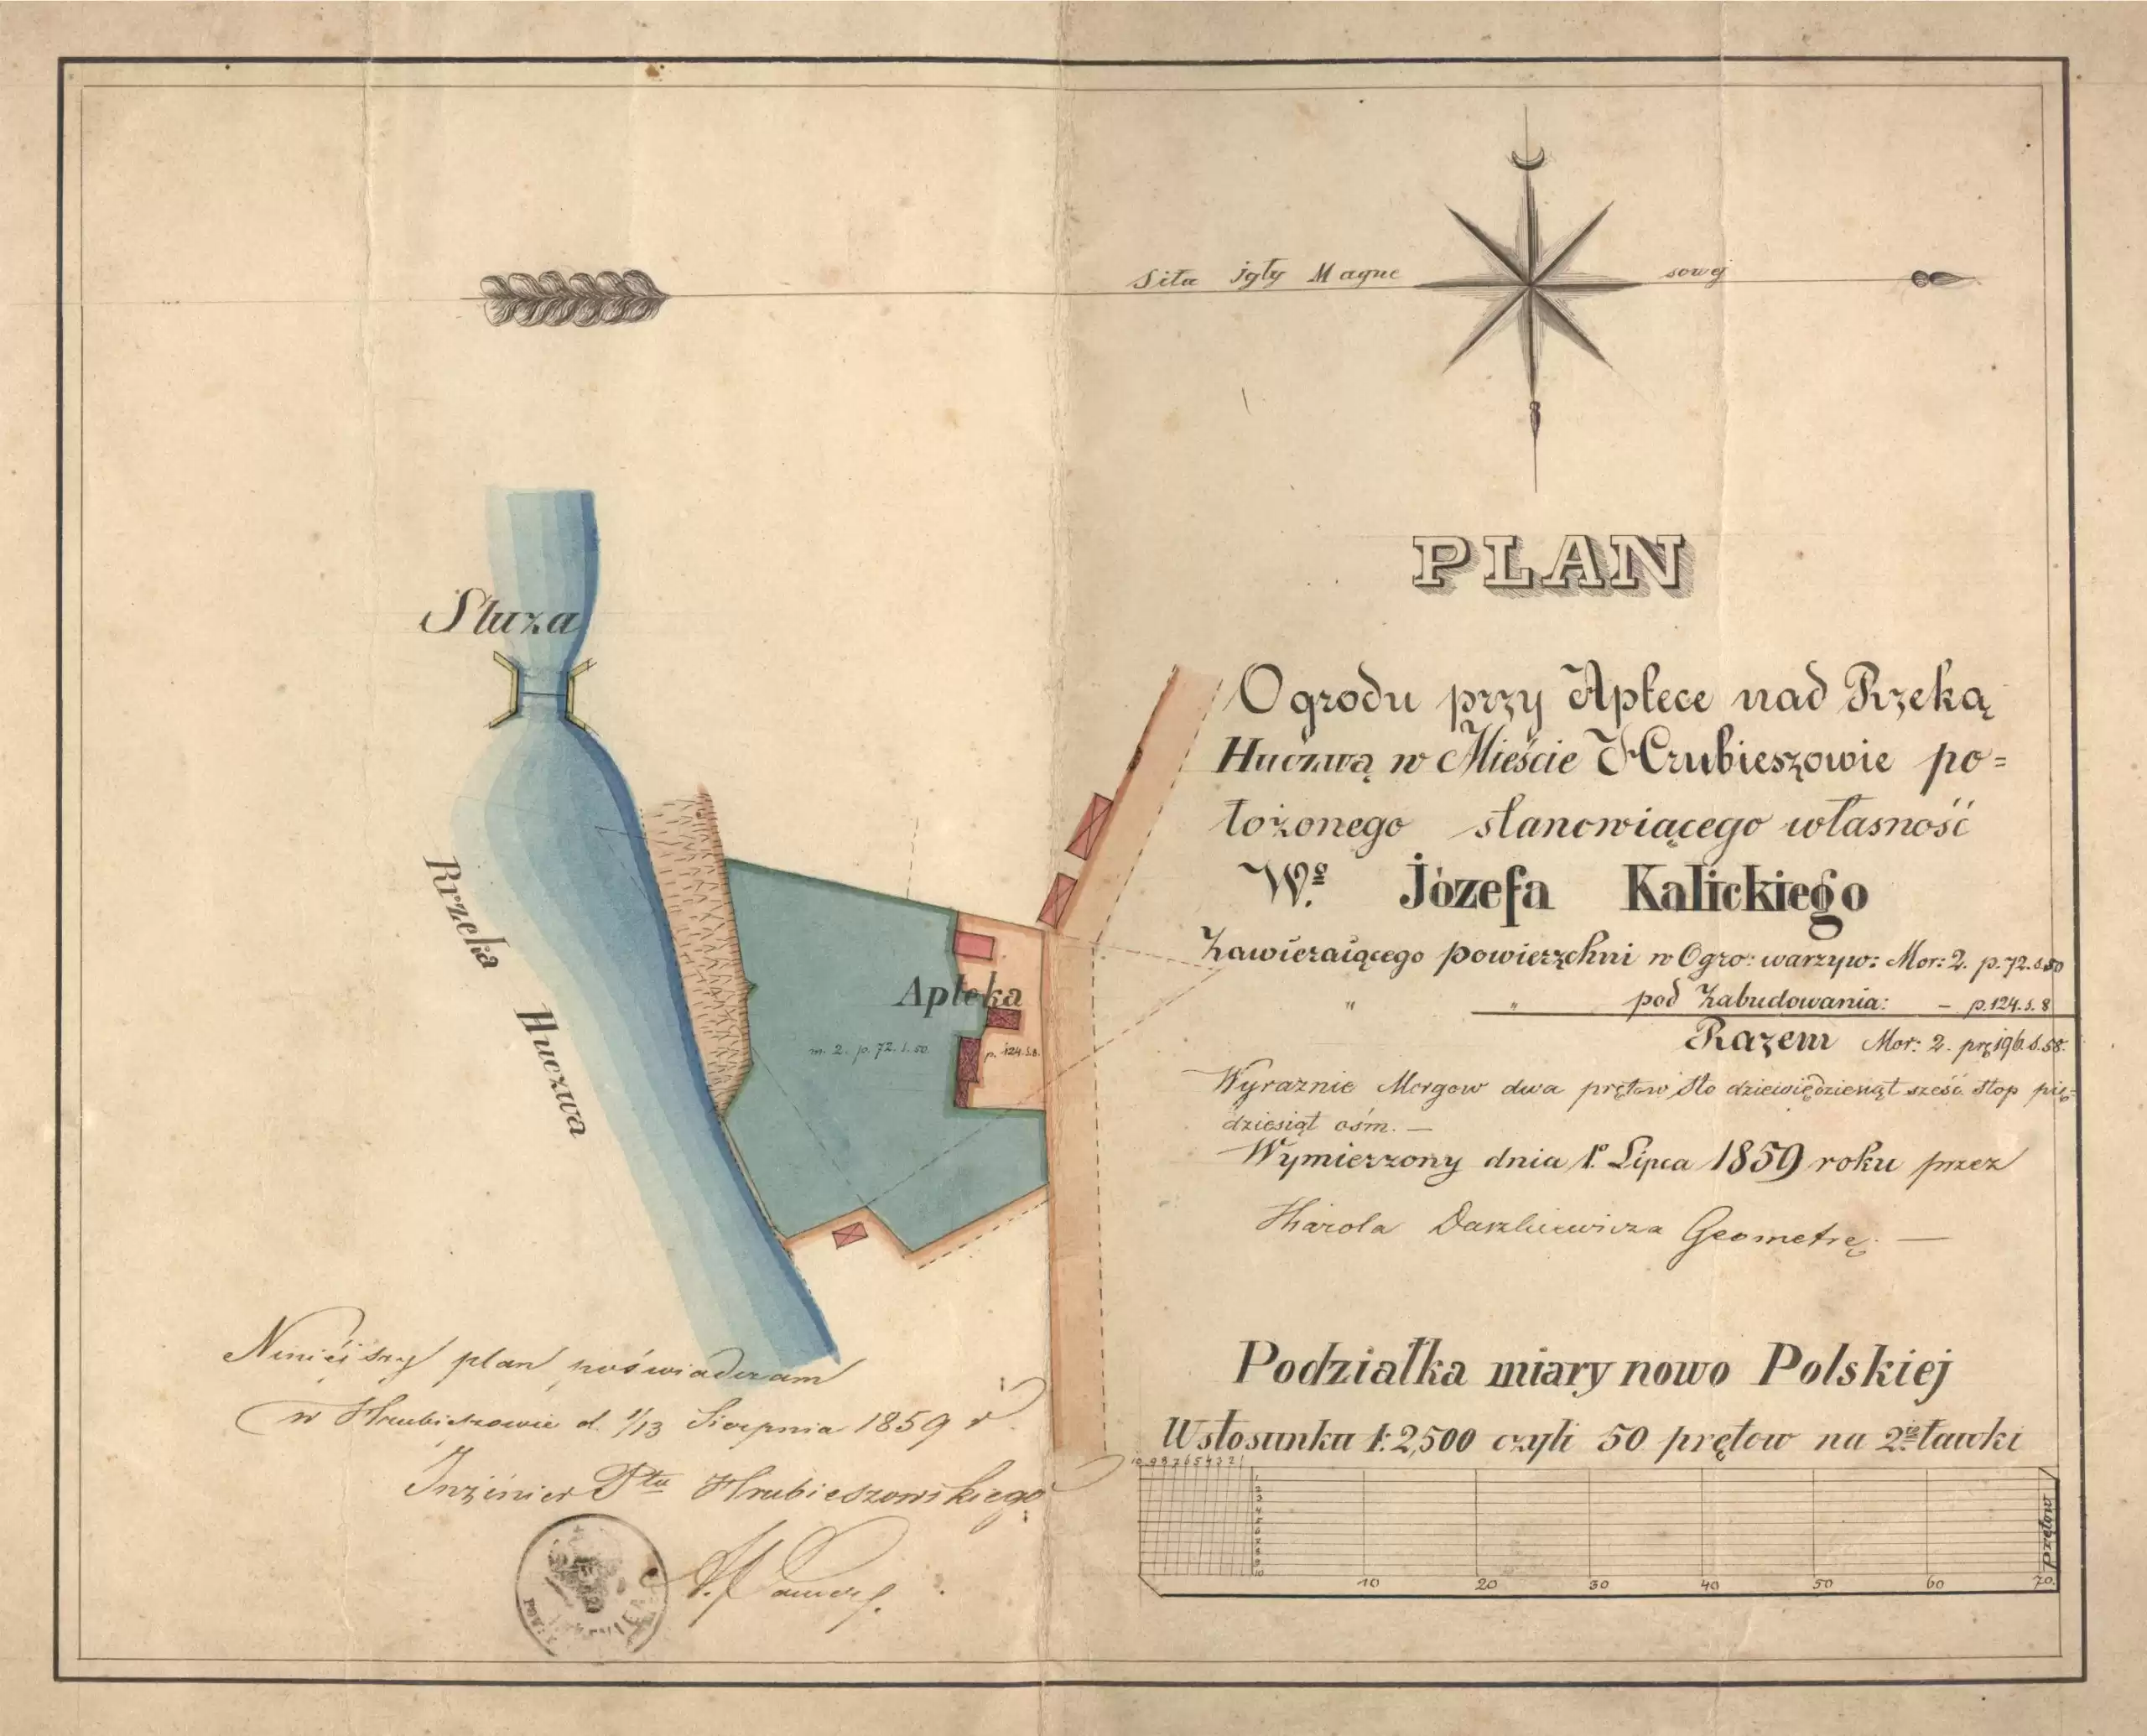 Siła igły Magne sowej
PLAN
Ogrodu przy Aptece nad Rzeką
Huczwą w Mieście Hrubieszowie po=
łożonego stanowiącego własność
Wº Józefa Kalickiego
Zawieraiącego powierzchni w Ogro: warzyw: Mor: 2. p. 72. s. 50
" " pod Zabudowania: – p. 124. s. 8
Razem Mor: 2. prz 196. s. 58.
Wyraznie Morgow dwa prętow Sto dziewiędziesiąt sześć Stop pię=
dziesiąt ośm. —
Wymierzony dnia 1º Lipca 1859 roku przez
Karola Daszkiewicza Geometrę. —
Podziałka miary nowo Polskiej
W stosunku 1:2,500 czyli 50 prętow na 2 ławki
10 9 8 7 6 5 4 3 2 1
1
2
3
4
5
6
7
8
9
10
10 20 30 40 50 60 70.
Prętow
Sluza
Rzeka Huczwa
Apteka
m. 2. p. 72. s. 50.
p. 124. s. 8.
Niniéjszy plan poświadczam
w Hrubieszowie d. 1/13 Sierpnia 1859 r.
Inżinier Ptu Hrubieszowskiego